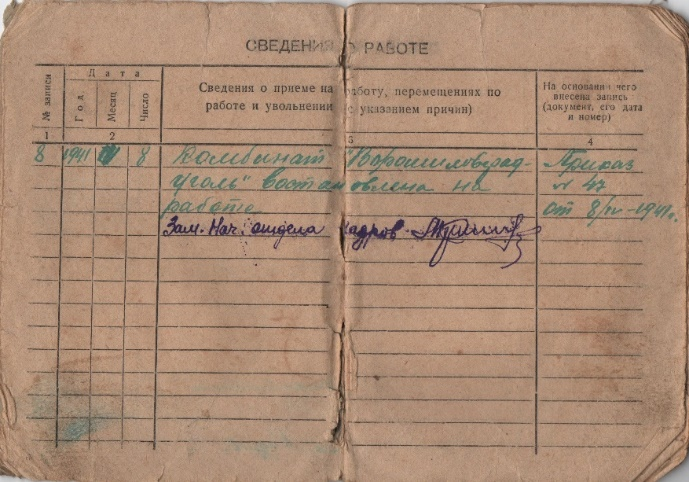 СВЕДЕНИЯ О РАБОТЕ
№ записи
Дата
Год
Месяц
Число
Сведения о приеме на работу, перемещениях по
работе и увольнении с указанием причин)
На основании чего
внесена запись
(документ, его дата
и номер)
1
2
3
4
8 1941 IV 8 Комбинат "Ворошиловград-
уголь" востановлена на
работе
Приказ
№ 47
от 8/IV-1941г.
Зам. Нач. отдела кадров